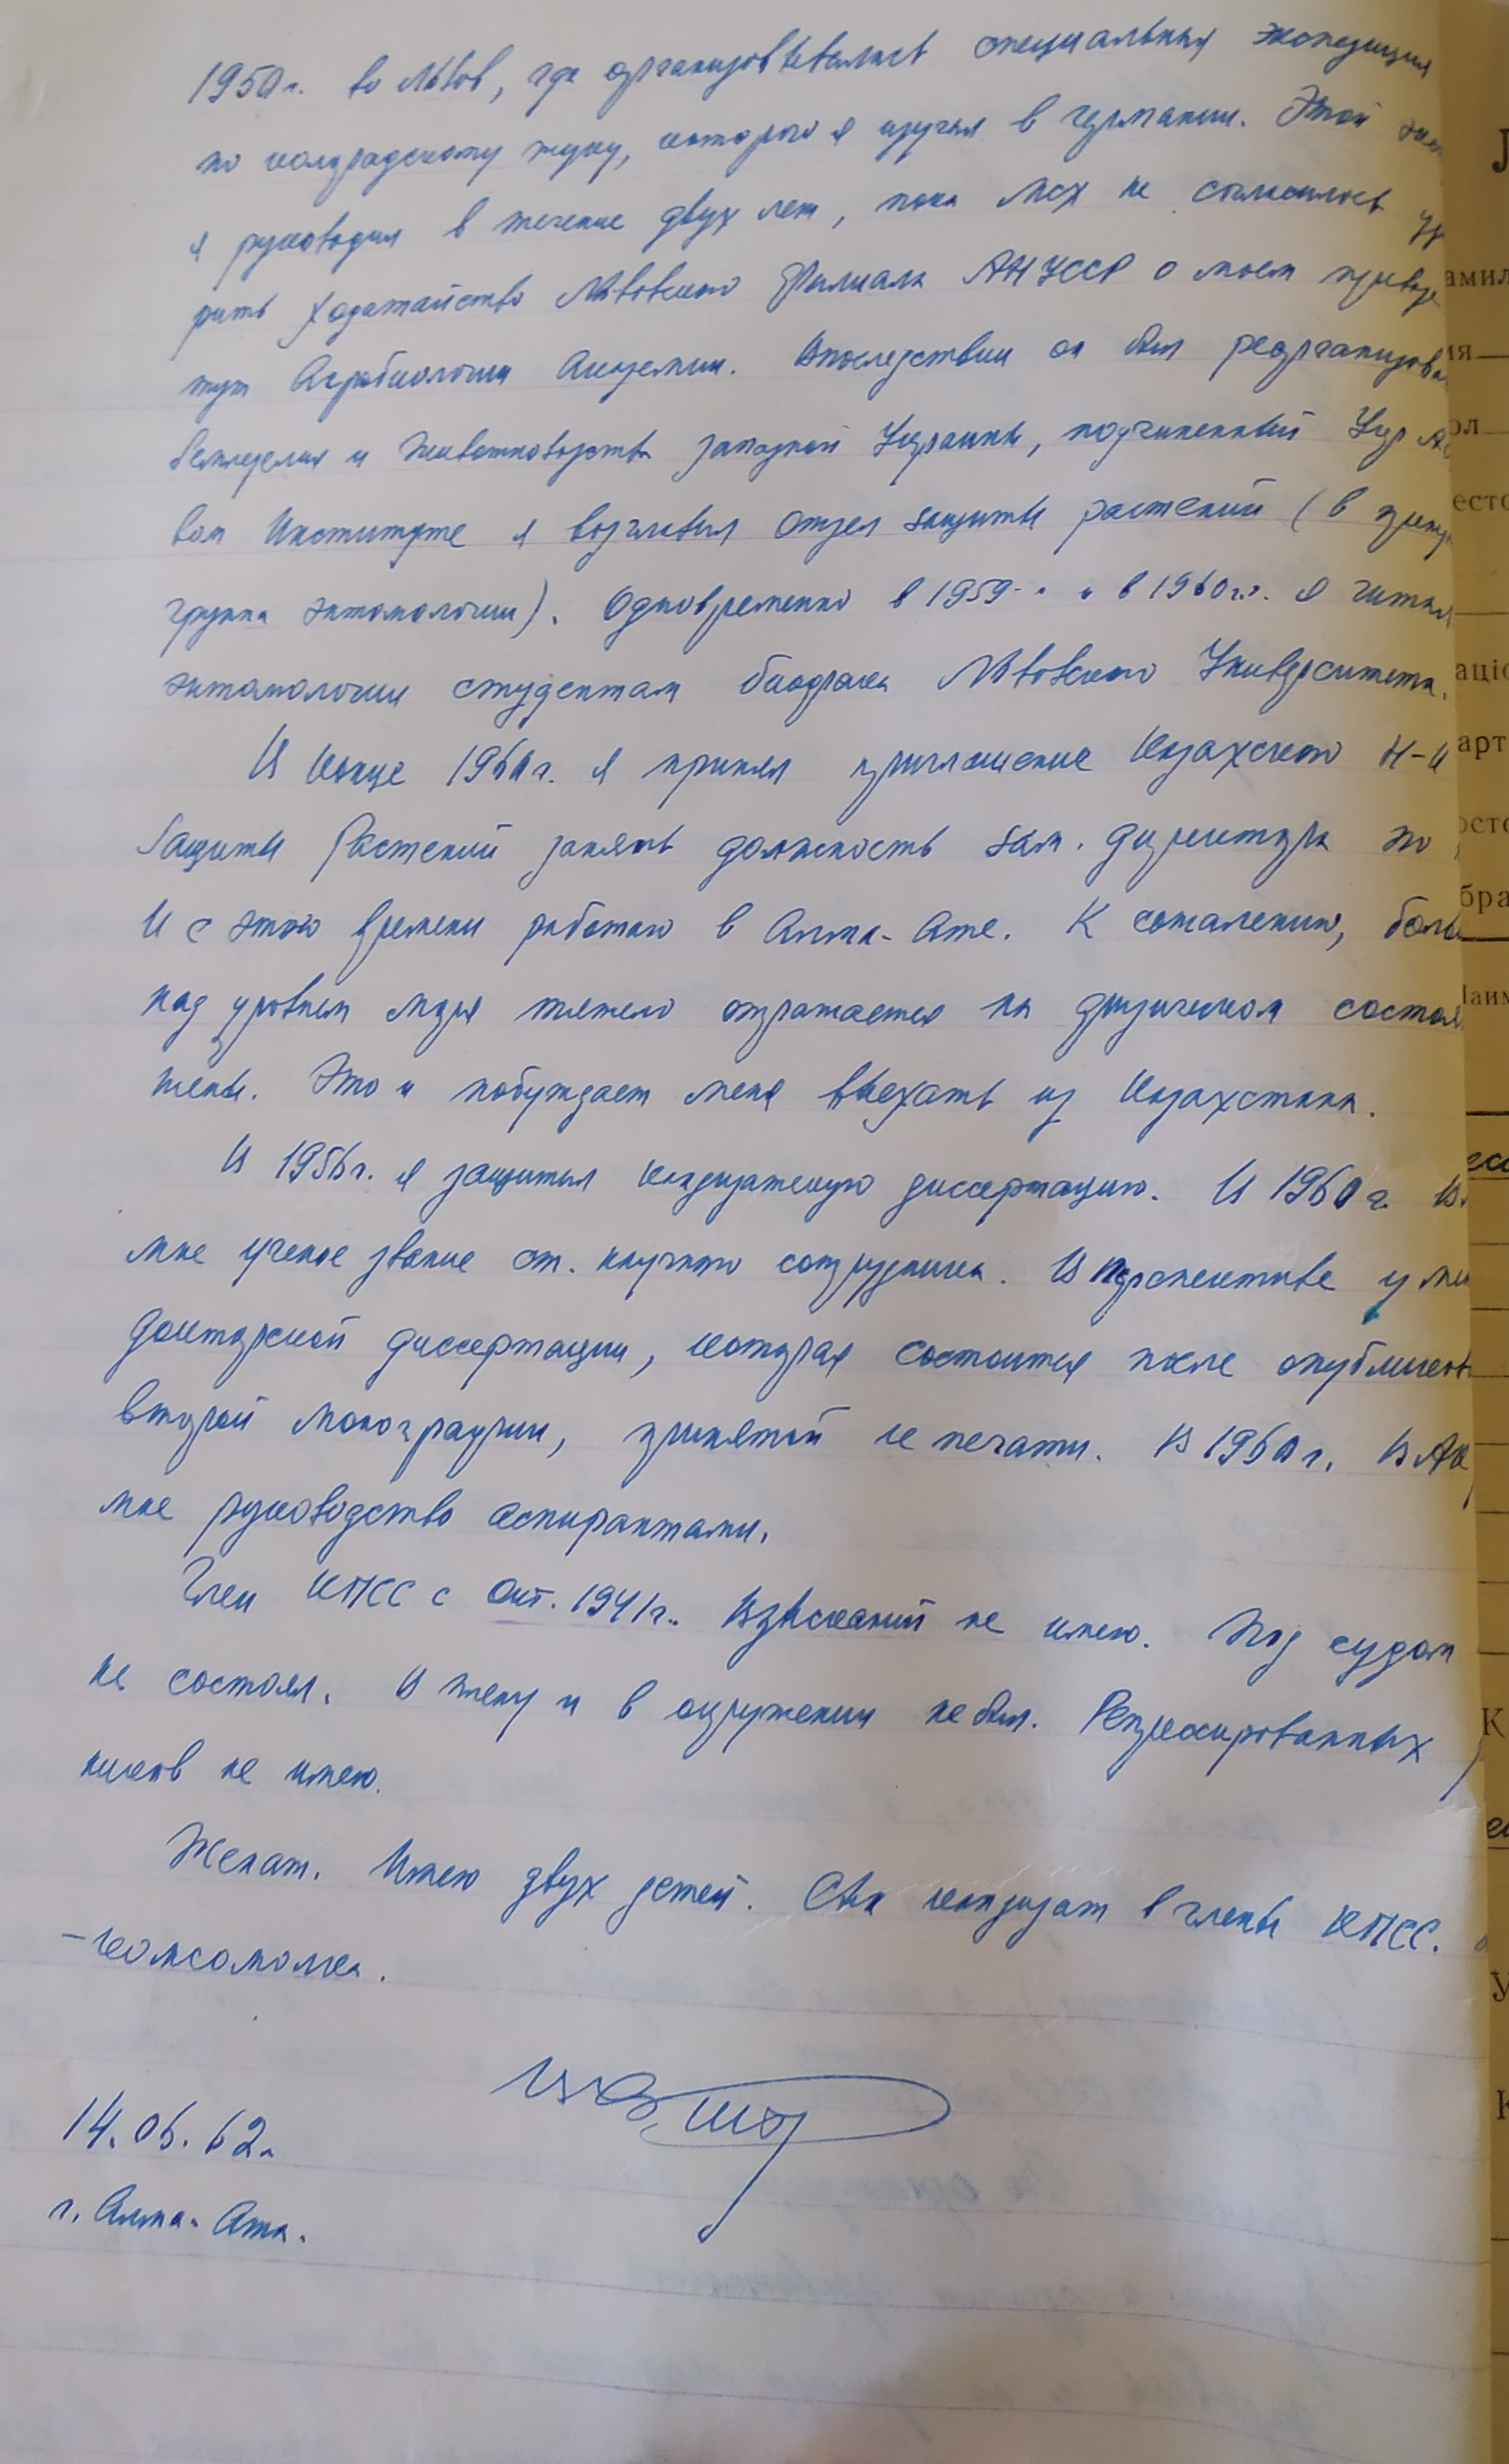 1950г. во Львов, где организовывалась специальная экспедиция
по колорадскому жуку, которого я изучал в Германии. Этой
я руководил в течение двух лет, пока МСХ не согласилось
рить ходатайство Львовского филиала АН УССР о моем
тут Агробиологии Академии. Впоследствии он был реорганизова
Земледелия и Животноводства западной Украины, подчиненный Укр
вом Институте я возглавил Отдел защиты растений (в
группа энтомологии). Одновременно в 1959 и в 1960гг. я читал
энтомологии студентам биофака Львовского Университета.
В конце 1960г. я принял приглашение Казахского Н-И
Защиты Растений занять должность зам. директора по
И с этого времени работаю в Алма-Ате. К сожалению, боль
над уровнем моря тяжело отражается на физическом состоя
жены. Это и побуждает меня выехать из Казахстана.
В 1956г. я защитил кандидатскую диссертацию. В 1960г. В
мне ученое звание ст. научного сотрудника. В перспективе у ме
докторской диссертации, которая состоится после опубликов
второй монографии, принятой к печати. В 1960г. ВАК
мне руководство аспирантами.
Член КПСС с окт. 1941г. Взысканий не имею. Под судом
не состоял. В плену и в окружении не был. Репрессированных
ников не имею.
Женат. Имею двух детей. Сын кандидат в члены КПСС.
-комсомолка.
14.06.62.
г. Алма-Ата.
амил
ия
ол
есто
аціо
арт
осто
бра
Наим
К
У
К